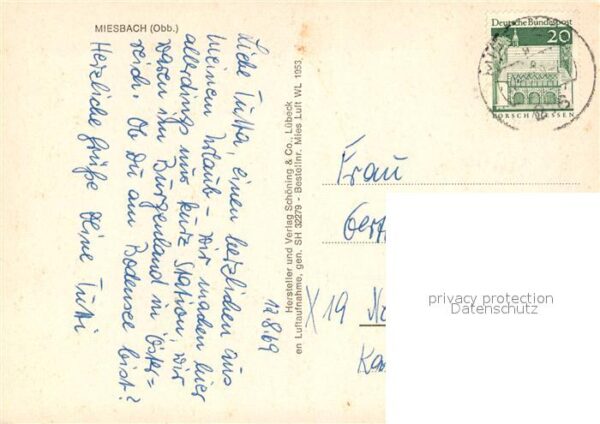 MIESBACH (Obb.)
12.8.69
Liebe Tutta, einen herzlichen aus
meinem Urlaub - wir machen hier
allerdings nur kurz Station, wir
waren im Burgenland in Öster=
reich. Ob Du am Bodensee bist?
Herzliche Grüße Deine Tutti
Hersteller und Verlag Schöning & Co., Lübeck
en Luftaufnahme, gen. SH 32279 - Bestellnr. Mies Luft WL 1953
Deutsche Bundespost
20
LORSCH/HESSEN
Frau
Gert
X 19 N
Ka
privacy protection
Datenschutz